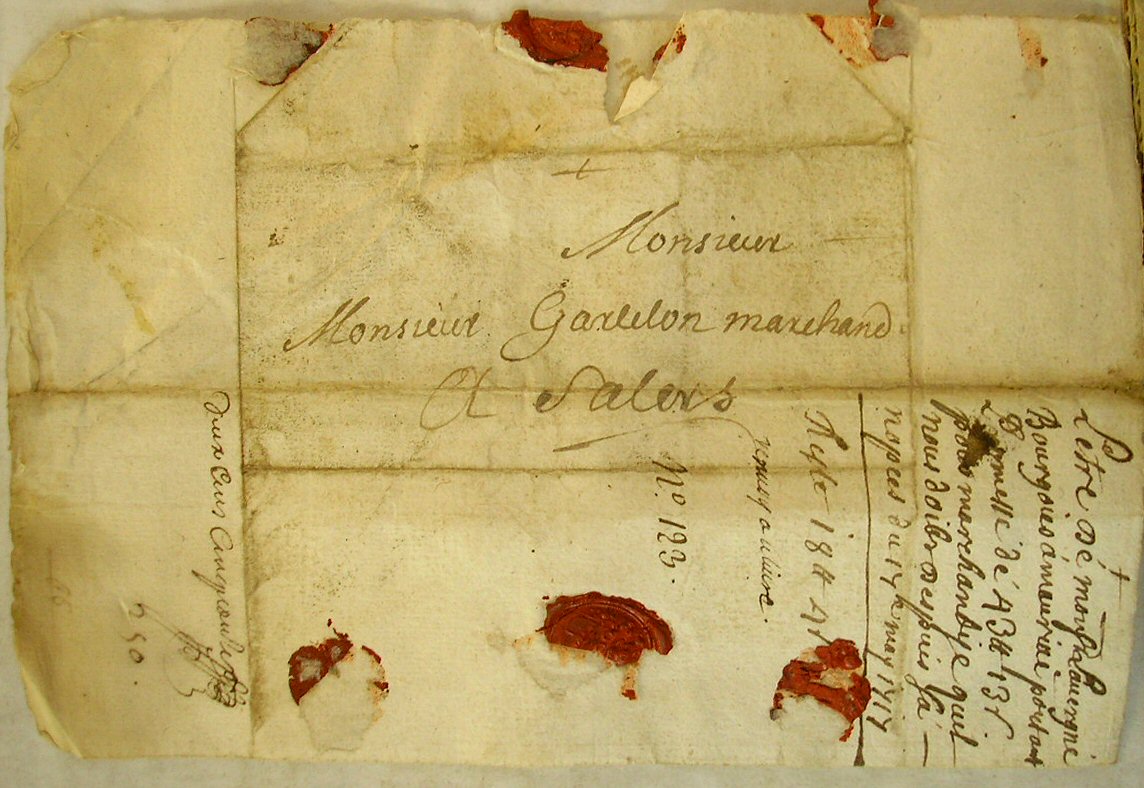 Monsieur
Monsieur Gartelon marchand
A Salers
N° 123.
Létre dé monsr Lauergne
Bourgois a mauriac portant
promesse dé 43lt 13s
pour marchandize quil
nous doibt despuis la
nopces du 14e may 1717
Reste 18lt 4s
deux cens cinq
250